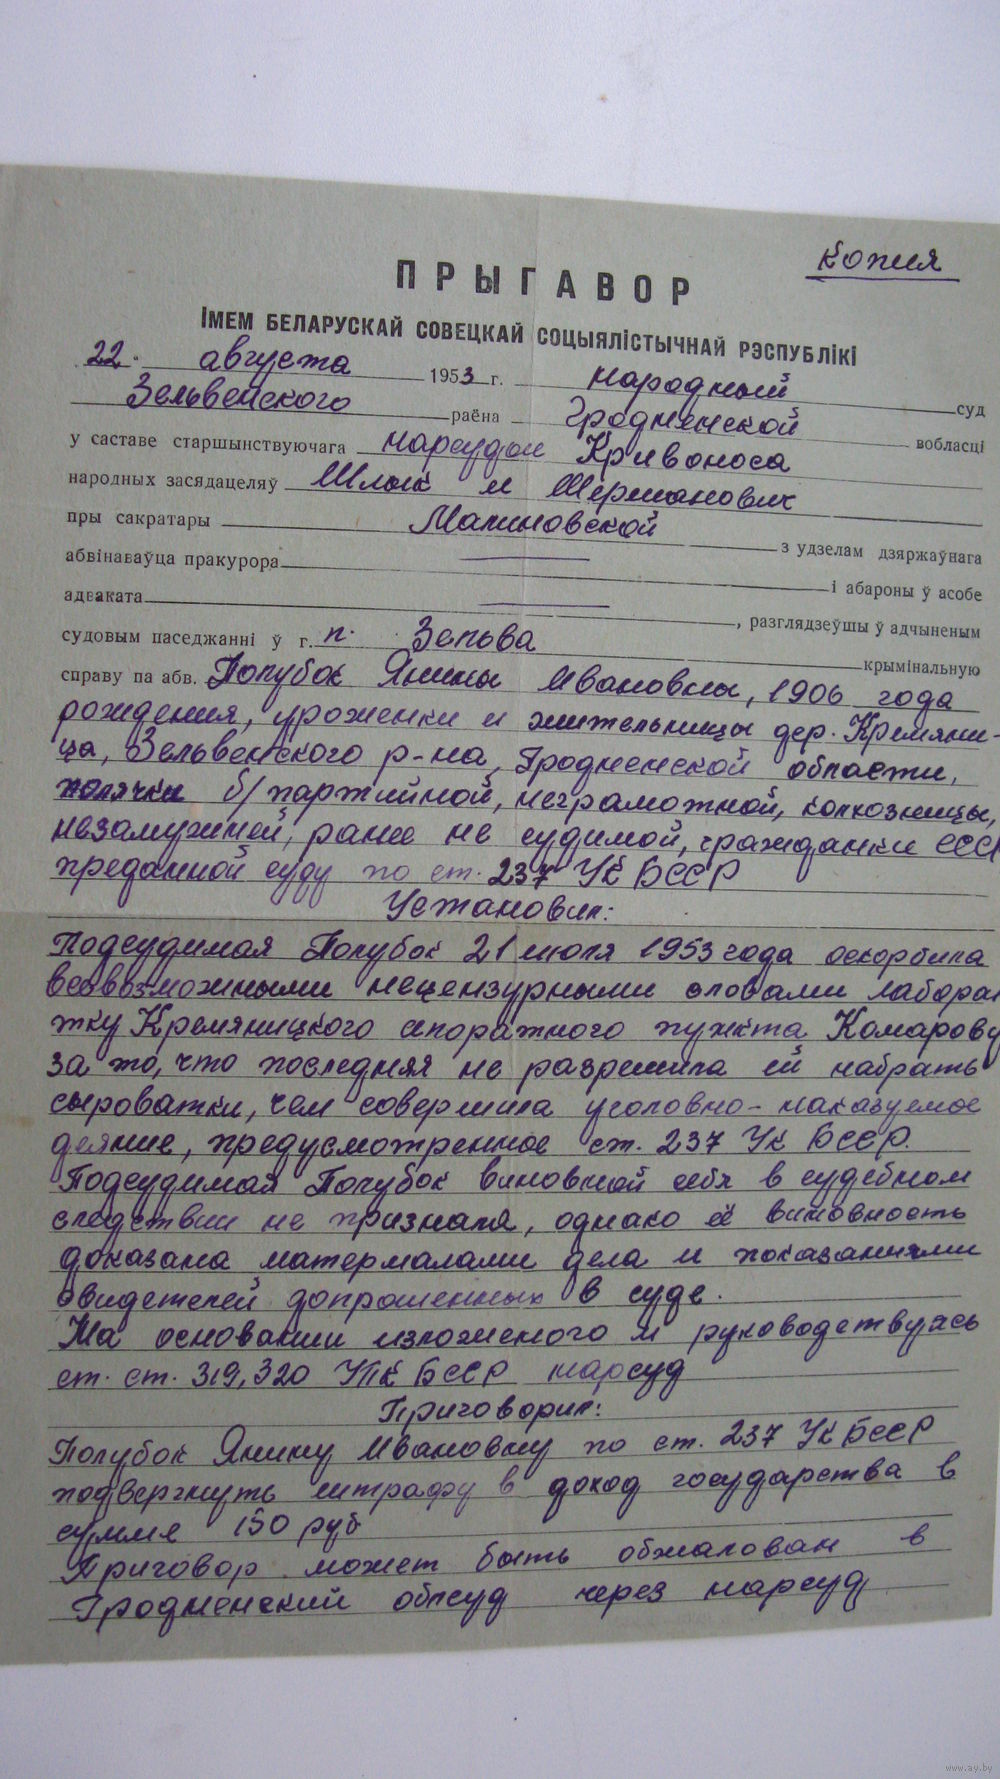 копия
ПРЫГАВОР
ІМЕМ БЕЛАРУСКАЙ СОВЕЦКАЙ СОЦЫЯЛІСТЫЧНАЙ РЭСПУБЛІКІ
22. августа 1953 г. народный суд
Зельвенского раёна Гродненской вобласці
у саставе старшынствуючага нарсудьи Кривоноса
народных засядацеляў Шлык и Шерманович
пры сакратары Малиновской з удзелам дзяржаўнага
абвінаваўца пракурора — і абароны ў асобе
адваката — , разглядзеўшы ў адчыненым
судовым паседжанні ў г. п. Зельва крымінальную
справу па абв. Полубок Янины Ивановны, 1906 года
рождения, уроженки и жительницы дер. Кремяни-
ца, Зельвенского р-на, Гродненской области,
полячки б/партийной, неграмотной, колхозницы,
незамужней, ранее не судимой, гражданки ССС
преданной суду по ст. 237 УК БССР
Установил:
Подсудимая Полубок 21 июля 1953 года оскорбила
всевозможными нецензурными словами лабора
тку Кремяницкого сепоратного пункта Комарову
за то, что последняя не разрешила ей набрать
сыроватки, чем совершила уголовно-наказуемое
деяние, предусмотренное ст. 237 УК БССР.
Подсудимая Полубок виновной себя в судебном
следствии не признала, однако её виновность
доказана материалами дела и показаниями
свидетелей допрошенных в суде.
На основании изложеного и руководствуясь
ст. ст. 319, 320 УПК БССР нарсуд
Приговорил:
Полубок Янину Ивановну по ст. 237 УК БССР
подвергнуть штрафу в доход государства в
сумме 150 руб
Приговор может быть обжалован в
Гродненский облсуд через нарсуд
www.ay.by